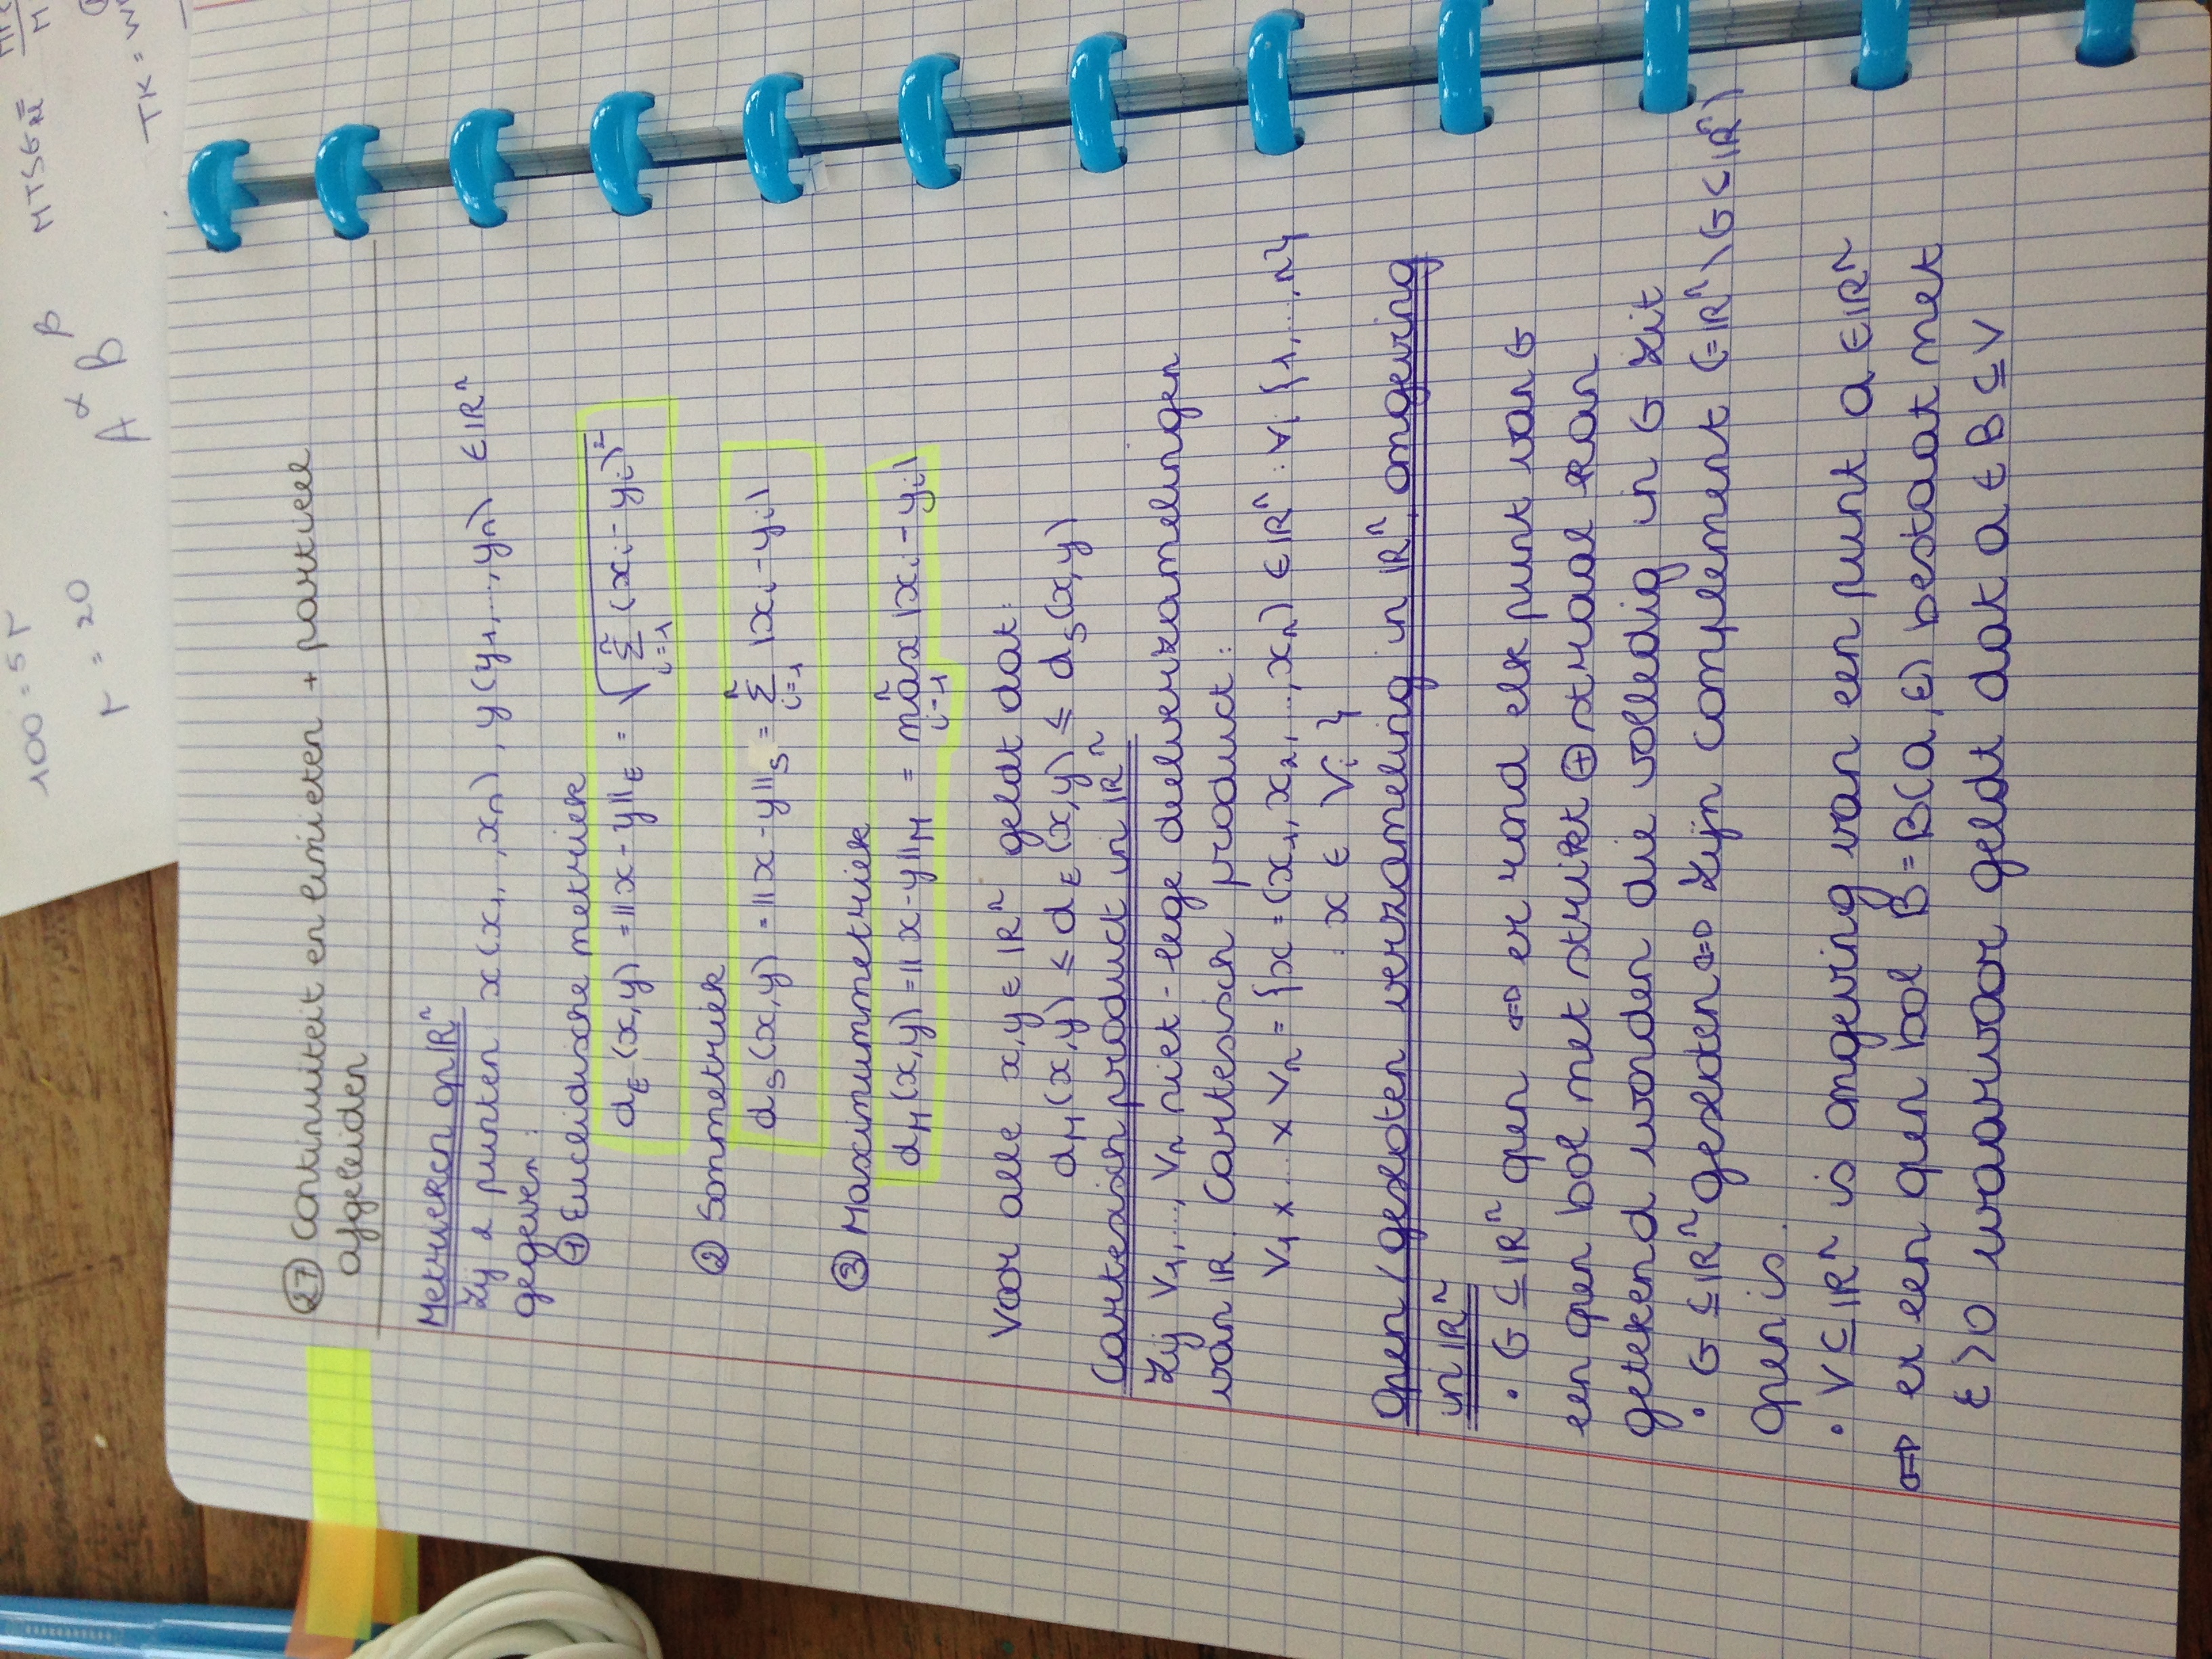 100 = 5 r
r = 20
A^α B^β
MTSG
TK = W
㉗ Continuiteit en limieten + partieel
afgeleiden
Metrieken op ℝⁿ
Zij 2 punten x(x₁,...,xₙ), y(y₁,...,yₙ) ∈ ℝⁿ
gegeven:
① Euclidische metriek
d_E(x,y) = ||x-y||_E = √(Σ_{i=1}^{n} (xᵢ-yᵢ)²)
② Sommetriek
d_S(x,y) = ||x-y||_S = Σ_{i=1}^{n} |xᵢ-yᵢ|
③ Maximummetriek
d_M(x,y) = ||x-y||_M = max_{i=1}^{n} |xᵢ-yᵢ|
Voor alle x,y ∈ ℝⁿ geldt dat:
d_M(x,y) ≤ d_E(x,y) ≤ d_S(x,y)
Cartesisch product in ℝⁿ
Zij V₁,...,Vₙ niet-lege deelverzamelingen
van ℝ. Cartesisch product:
V₁ x ... x Vₙ = {x = (x₁,x₂,...,xₙ) ∈ ℝⁿ : ∀i {1,...,n}
: x ∈ Vᵢ}
Open/gesloten verzameling in ℝⁿ, omgeving
in ℝⁿ
• G ⊆ ℝⁿ open ⇔ er rond elk punt van G
een open bol met strikt ⊕ straal kan
getekend worden die volledig in G zit
• G ⊆ ℝⁿ gesloten ⇔ zijn complement (=ℝⁿ\G ⊂ ℝⁿ)
open is.
• V ⊆ ℝⁿ is omgeving van een punt a ∈ ℝⁿ
⇔ er een open bol B = B(a,ε) bestaat met
ε > 0 waarvoor geldt dat a ∈ B ⊆ V